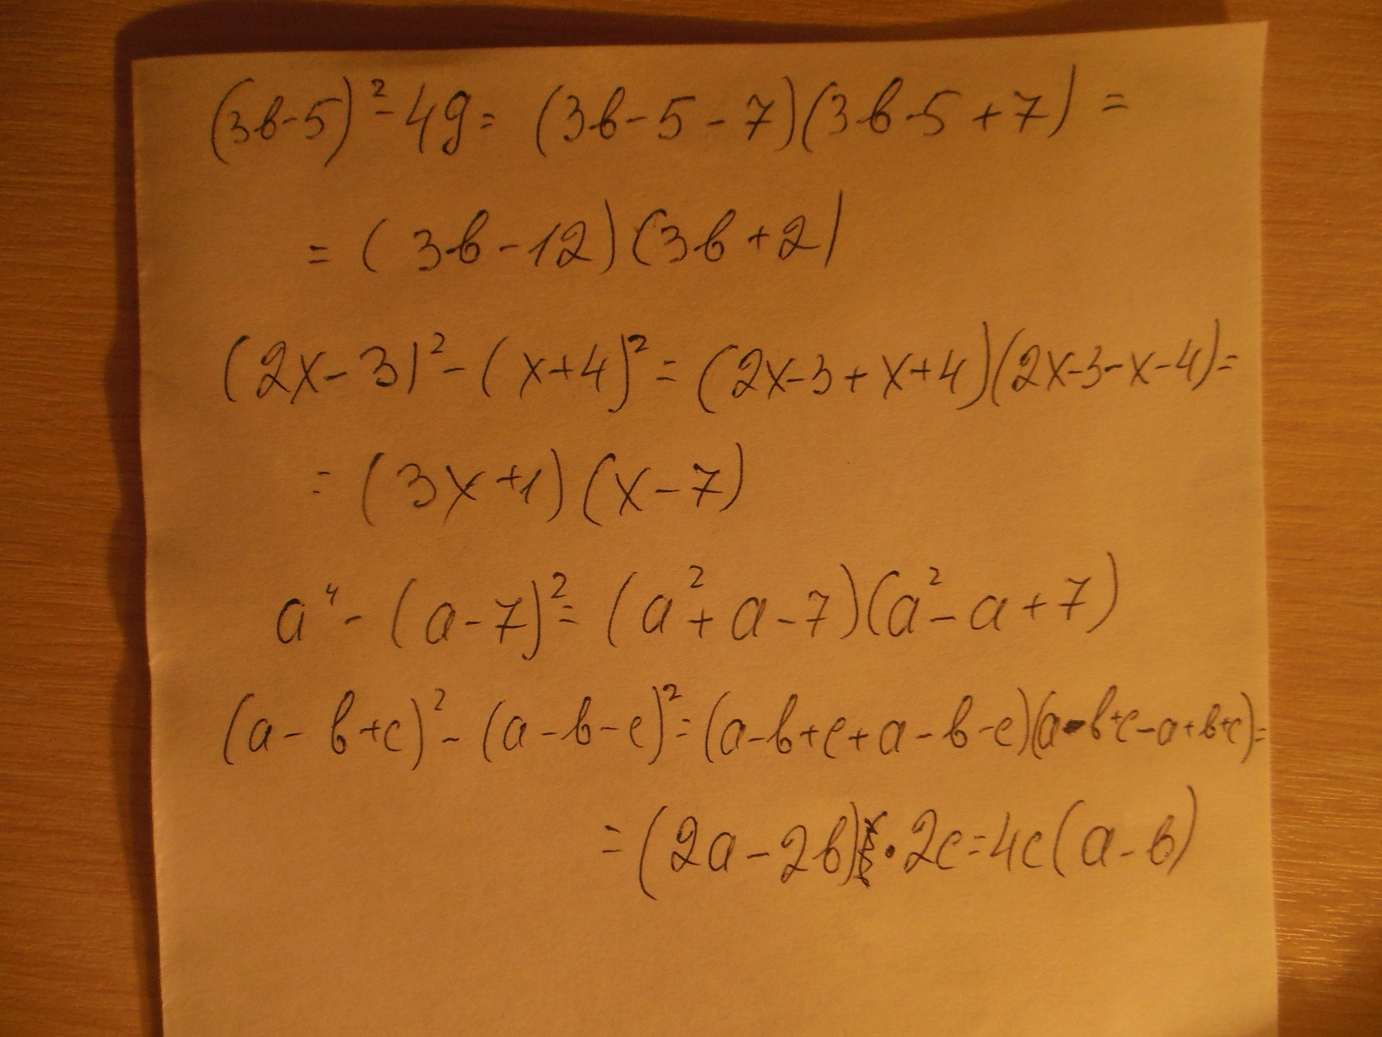 (3b-5)² - 49 = (3b-5-7)(3b-5+7) =
= (3b-12)(3b+2)
(2x-3)² - (x+4)² = (2x-3+x+4)(2x-3-x-4) =
= (3x+1)(x-7)
a⁴ - (a-7)² = (a²+a-7)(a²-a+7)
(a-b+c)² - (a-b-c)² = (a-b+c+a-b-c)(a-b+c-a+b+c) =
= (2a-2b)·2c = 4c(a-b)